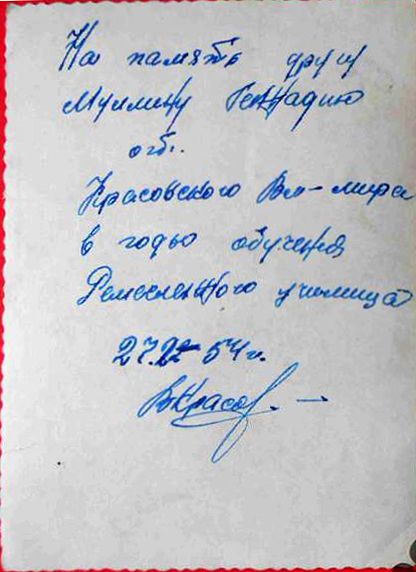 На память другу
Мулмину Геннадию
от.
Красовского Вл-мира
в годы обучения
Ремесленного училища
27. 54 г.
ВКрасов